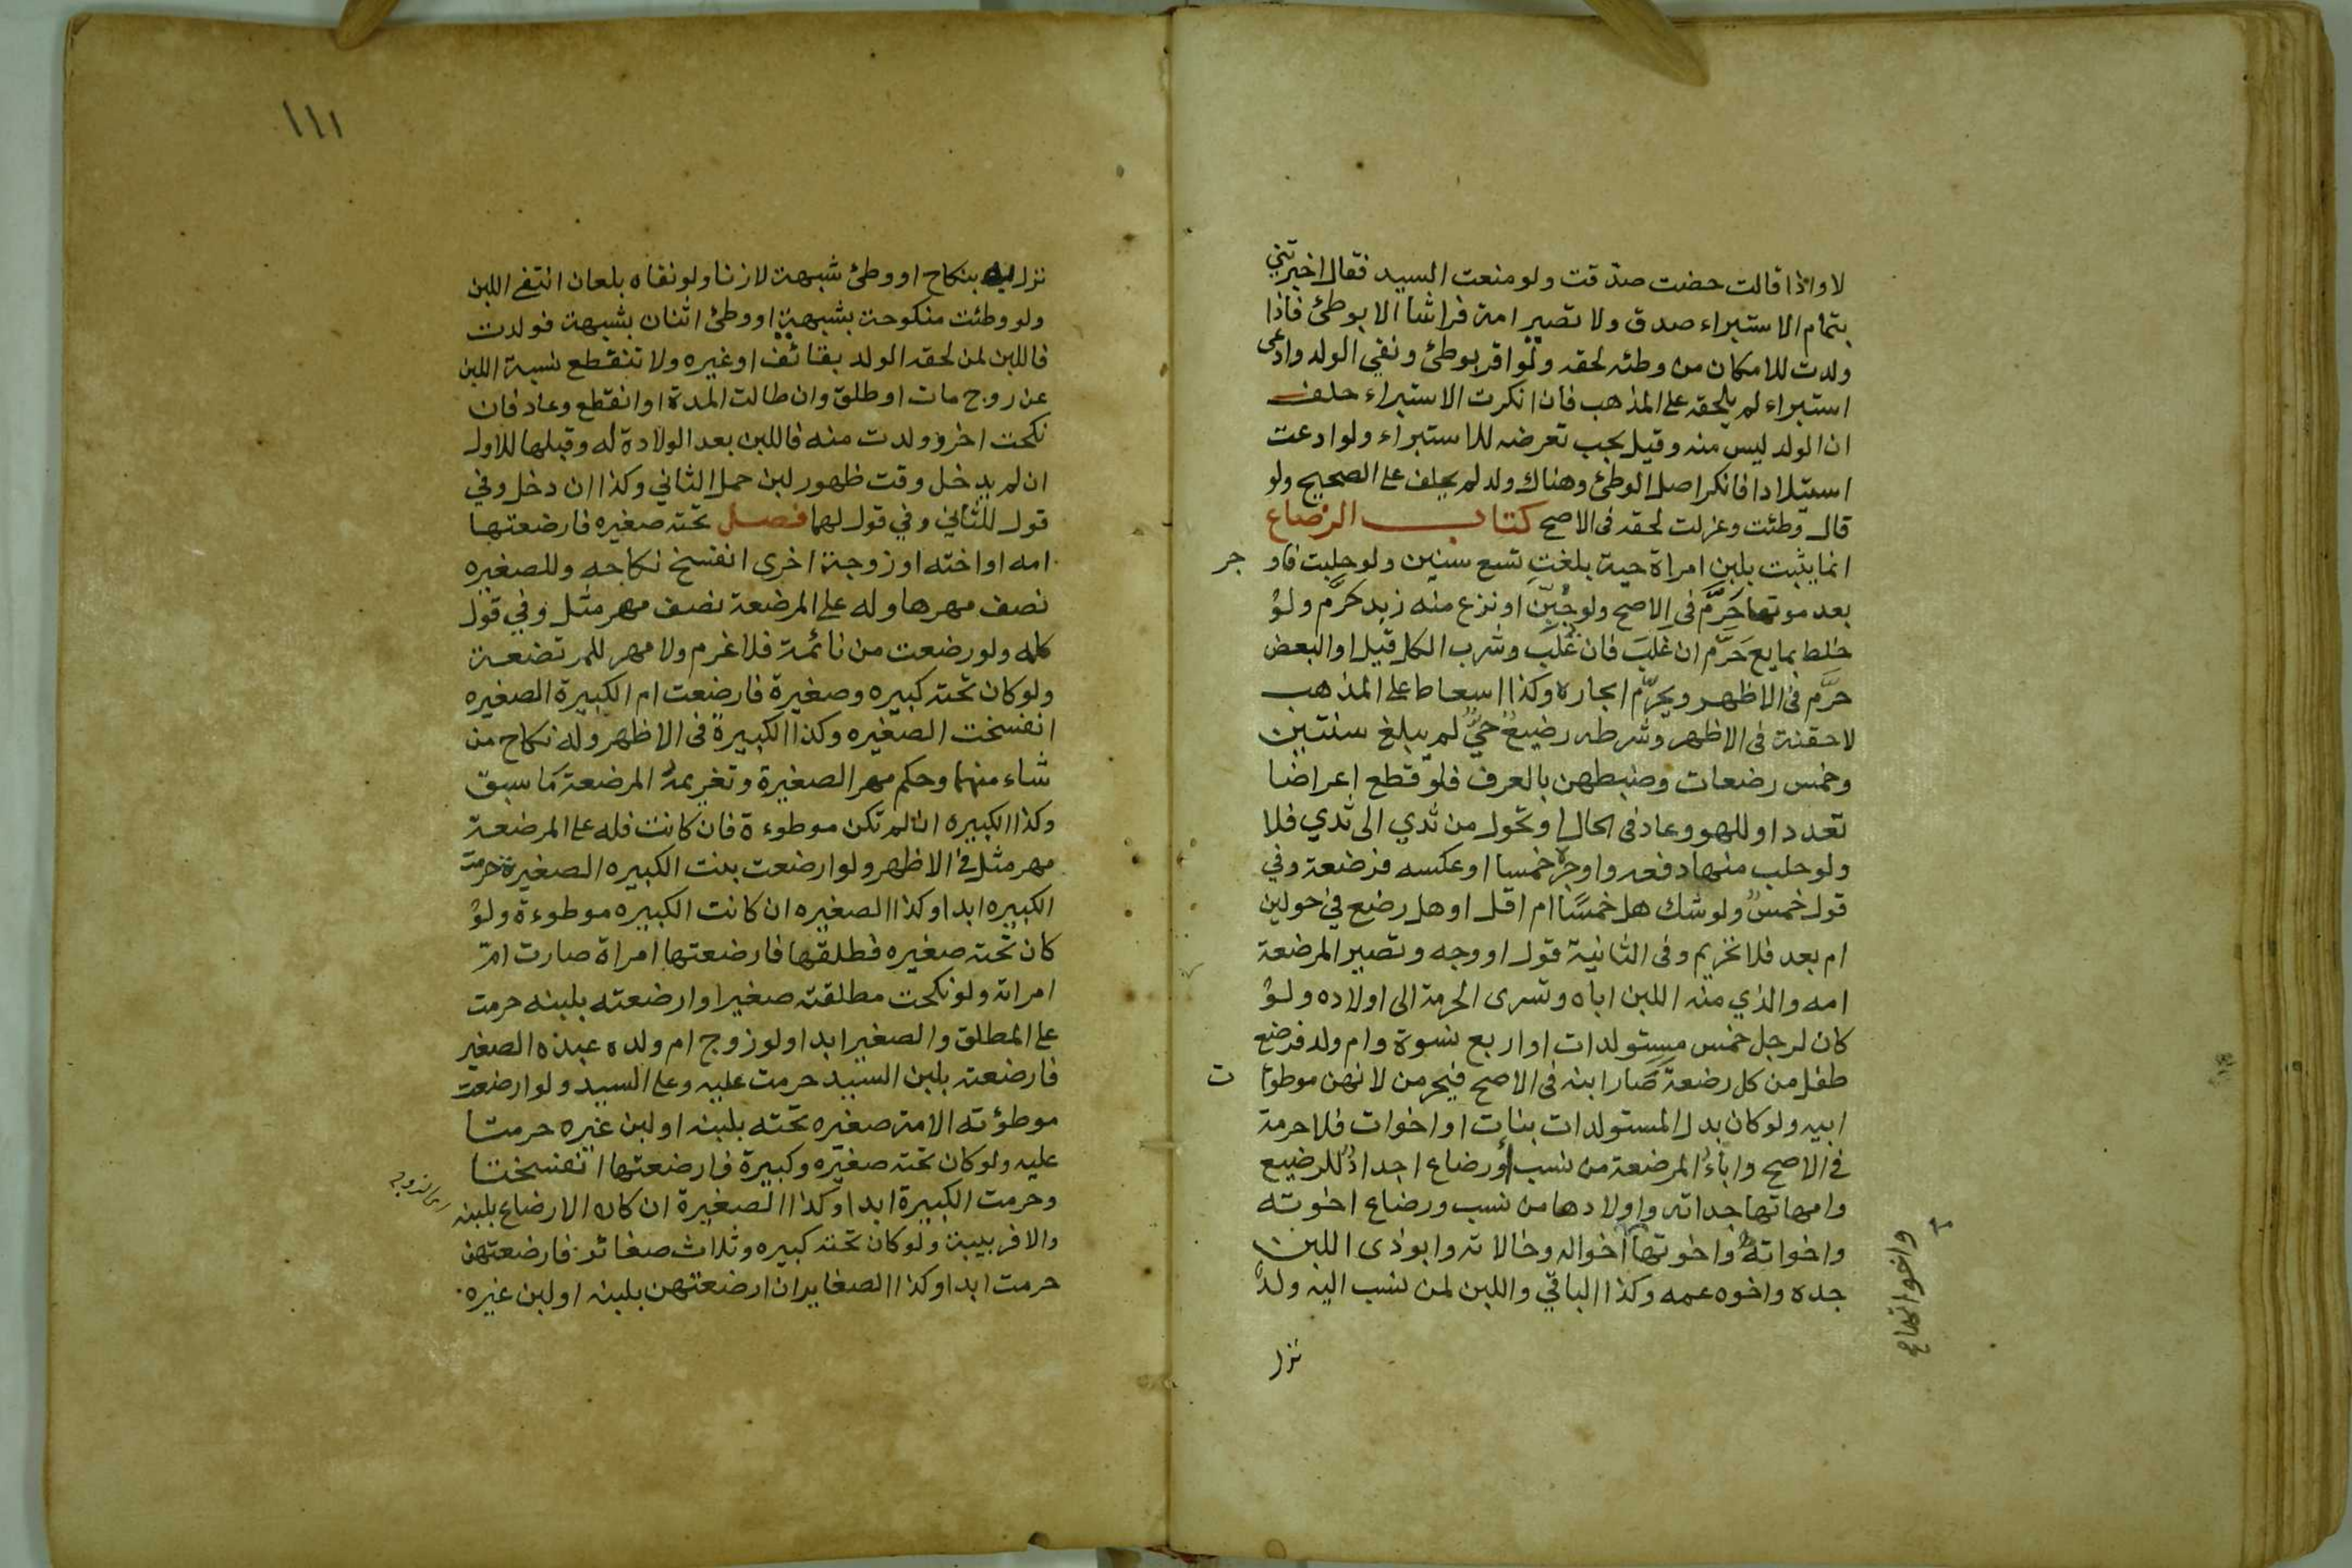 لا واذا قالت حضت صدقت ولو منعت السيد فقال اخبرتني
بتمام الاستبراء صدق ولا تصير امة فراشا الا بوطئ فاذا
ولدت للامكان من وطئه لحقه ولو اقر بوطئ ونفي الولد وادعى
استبراء لم يلحقه على المذهب فان انكرت الاستبراء حلف
ان الولد ليس منه وقيل يجب تعرضه للاستبراء ولو ادعت
استيلادا فانكر اصل الوطئ وهناك ولد لم يحلف على الصحيح ولو
قال وطئت وعزلت لحقه فى الاصح كتاب الرضاع
انما يثبت بلبن امراة حية بلغت تسع سنين ولو حلبت فاو جر
بعد موتها حَرَّم فى الاصح ولو جُبِّنَ او نزع منه زبد حرَّم ولو
خلط بمايع حَرَّم ان غلبَ فان غُلبَ وشرب الكل قيل او البعض
حرَّم فى الاظهر ويحرّم ايجاره وكذا اسعاط على المذهب
لا حقنة فى الاظهر وشرطه رضيعٌ حيٌّ لم يبلغ سنتين
وخمس رضعات وضبطهن بالعرف فلو قطع اعراضا
تعدد او للهو وعاد فى الحال او تحول من ثدي الى ثدي فلا
ولو حلب منها دفعه واوجره خمسا او عكسه فرضعة وفي
قول خمسٌ ولو شك هل خمسًا ام اقل او هل رضع في حولين
ام بعد فلا تحريم وفى الثانية قول او وجه وتصير المرضعة
امه والذي منه اللبن اباه وتسرى الحرمة الى اولاده ولو
كان لرجل خمس مستولدات او اربع نسوة وام ولد فرضع
طفل من كل رضعة صَار ابنه فى الاصح فيحرمن لانهن موطوا ت
ابيه ولو كان بدل المستولدات بنات او اخوات فلا حرمة
في الاصح واباءُ المرضعة من نسب أو رضاع اجدادٌ للرضيع
وامهاتها جداته واولادها من نسب ورضاع اخوته
واخواته واخوتها اخواله وخالاته وابو ذى اللبن
جده واخوه عمه وكذا الباقي واللبن لمن نسب اليه ولد
واخواتها صح
نزل
١١١
نزل به بنكاح او وطئ شبهة لا زنا ولو نفاه بلعان انتفى اللبن
ولو وطئت منكوحة بشبهة او وطئ اثنان بشبهة فولدت
فاللبن لمن لحقه الولد بقائف او غيره ولا تنقطع نسبة اللبن
عن زوج مات او طلق وان طالت المدة او انقطع وعاد فان
نكحت اخر وولدت منه فاللبن بعد الولادة له وقبلها للاول
ان لم يدخل وقت ظهور لبن حمل الثاني وكذا ان دخل وفي
قول للثاني وفي قول لهما فصل تحته صغيره فارضعتها
امه او اخته او زوجة اخرى انفسخ نكاحه وللصغيره
نصف مهرها وله على المرضعة نصف مهر مثل وفي قول
كله ولو رضعت من نائمة فلا غرم ولا مهر للمرتضعة
ولو كان تحته كبيره وصغيرة فارضعت ام الكبيرة الصغيره
انفسخت الصغيره وكذا الكبيرة فى الاظهر وله نكاح من
شاء منهما وحكم مهر الصغيرة وتغريمه المرضعة ما سبق
وكذا الكبيره ان لم تكن موطوءة فان كانت فله على المرضعة
مهر مثل في الاظهر ولو ارضعت بنت الكبيره الصغيرة حرمت
الكبيره ابدا وكذا الصغيره ان كانت الكبيره موطوءة ولو
كان تحته صغيره فطلقها فارضعتها امراة صارت ام
امراته ولو نكحت مطلقته صغيرا وارضعته بلبنه حرمت
على المطلق والصغير ابدا ولو زوج ام ولده عبده الصغير
فارضعته بلبن السيد حرمت عليه وعلى السيد ولو ارضعت
موطؤته الامة صغيره تحته بلبنه او لبن غيره حرمتا
عليه ولو كان تحته صغيره وكبيرة فارضعتها انفسختا
وحرمت الكبيرة ابدا وكذا الصغيرة ان كان الارضاع بلبنه
اى الزوج
والا فربيبة ولو كان تحته كبيره وثلاث صغائر فارضعتهن
حرمت ابدا وكذا الصغاير ان ارضعتهن بلبنه او لبن غيره